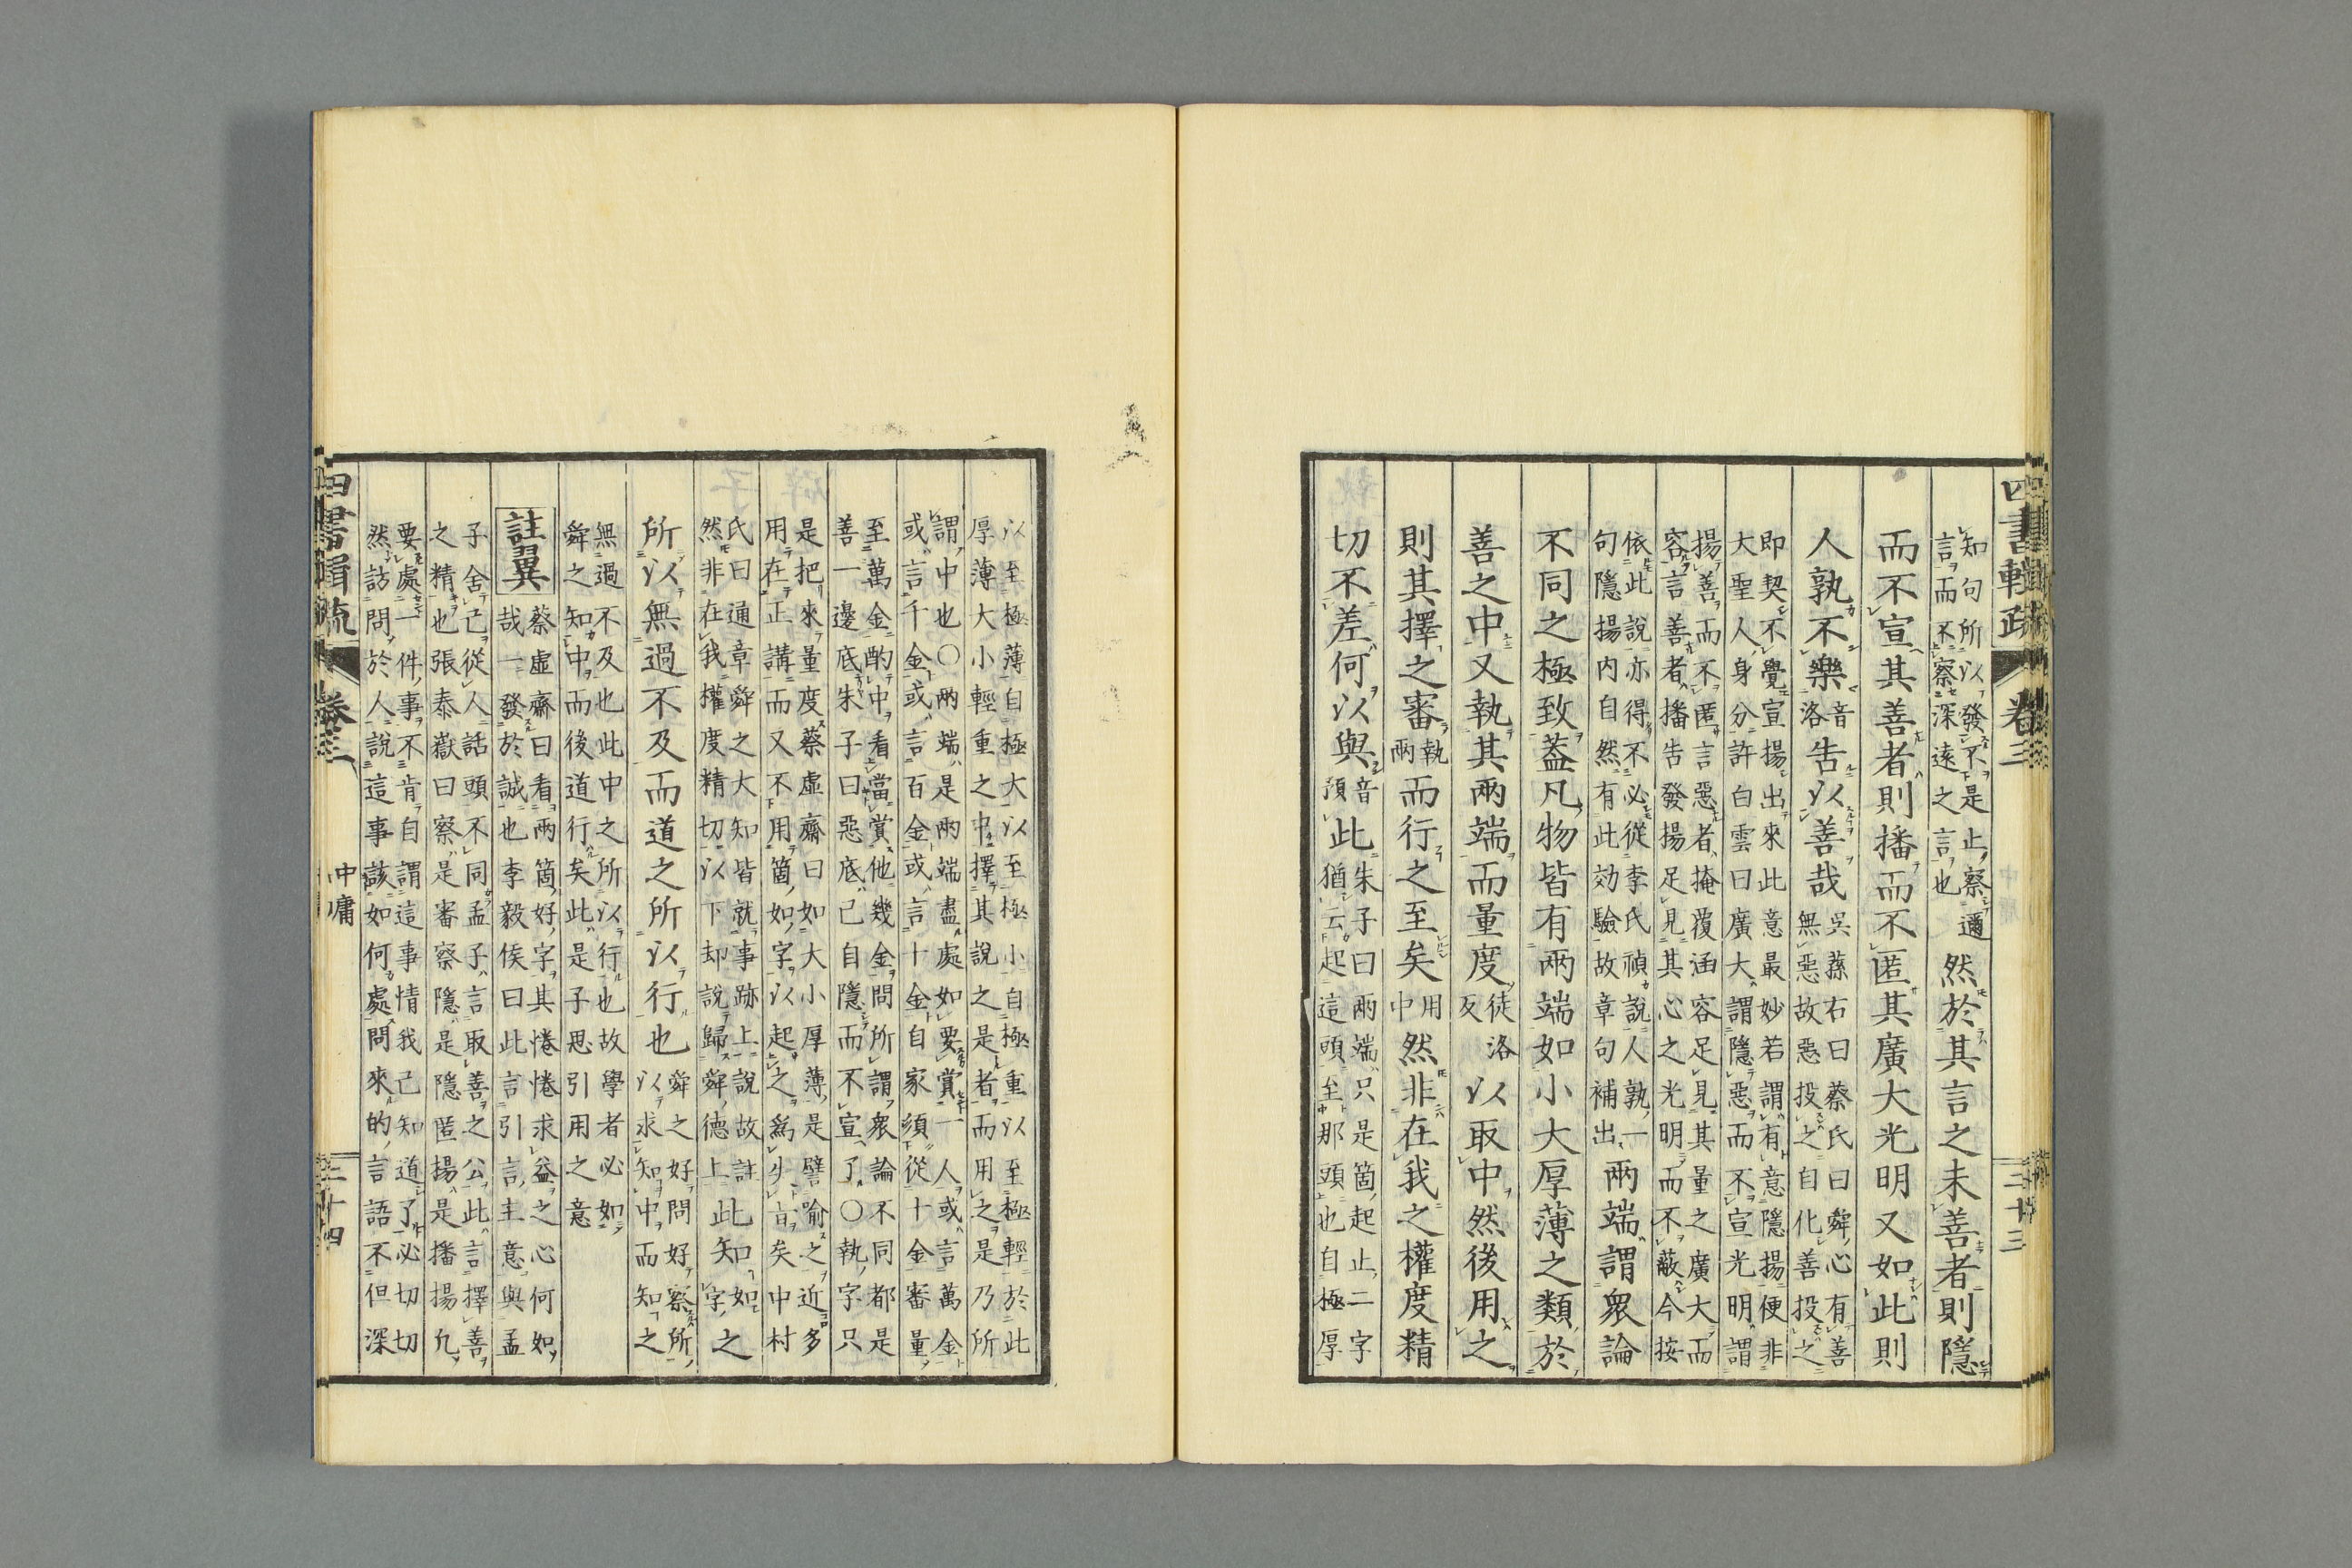 四書輯疏 卷三 三十三
知句所以發不是止察邇
言而不察深遠之言也
然於其言之未善者則隱
而不宣其善者則播而不匿其廣大光明又如此則
人孰不樂
音
洛
告以善哉
吳蓀右曰蔡氏曰舜心有善
無惡故惡投之自化善投之
即契不覺宣揚出來此意最妙若謂有意隱揚便非
大聖人身分許白雲曰廣大謂隱惡而不宣光明謂
揚善而不匿言惡者掩覆涵容足見其量之廣大而
容言善者播告發揚足見其心之光明而不蔽今按
依此說亦得不必從李氏禎說人孰一
句隱揚内自然有此効驗故章句補出
兩端謂衆論
不同之極致蓋凡物皆有兩端如小大厚薄之類於
善之中又執其兩端而量度
徒洛
反
以取中然後用之
則其擇之審
執
兩
而行之至矣
用
中
然非在我之權度精
切不差何以與
音
預
此
朱子曰兩端只是箇起止二字
猶云起這頭至那頭也自極厚
以至極薄自極大以至極小自極重以至極輕於此
厚薄大小輕重之中擇其說之是者而用之是乃所
謂中也○兩端是兩端盡處如要賞一人或言萬金
或言千金或言百金或言十金自家須從十金審量
至萬金酌中看當賞他幾金問所謂衆論不同都是
善一邊底朱子曰惡底已自隱而不宣了○執字只
是把來量度蔡虛齋曰如大小厚薄是譬喻之近多
用在正講而又不用箇如字以起之爲失旨矣中村
氏曰通章舜之大知皆就事跡上說故註
然非在我權度精切以下却說歸舜德上
此知如字之
所以無過不及而道之所以行也
舜之好問好察所
以求知中而知之
無過不及也此中之所以行也故學者必如
舜之知中而後道行矣此是子思引用之意
註翼
蔡虛齋曰看兩箇好字其惓惓求益之心何如
哉一發於誠也李毅侯曰此言引言主意與孟
子舍己從人話頭不同孟子言取善之公此言擇善
之精也張泰嶽曰察是審察隱是隱匿揚是播揚凡
要處一件事不肯自謂這事情我己知道了必切切
然訪問於人說這事該如何處問來的言語不但深
四書輯疏 卷三 中庸 三十四